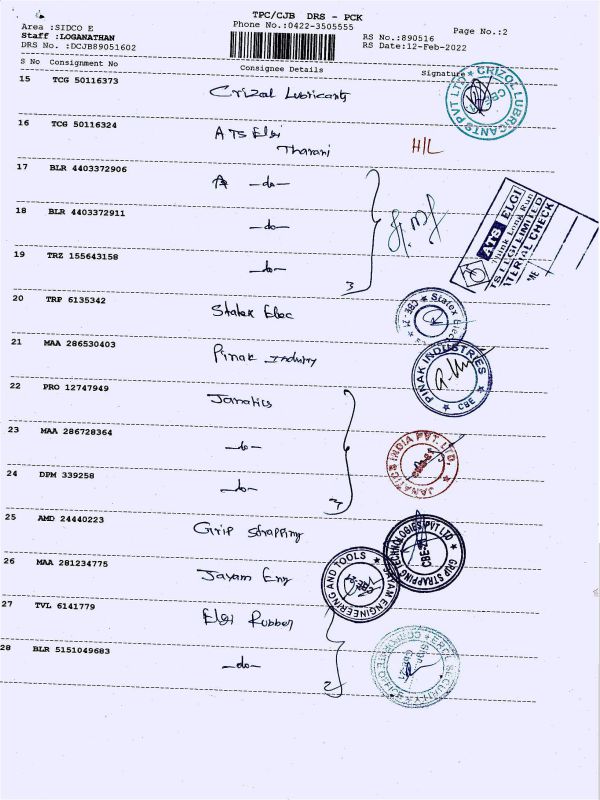 TPC/CJB DRS - PCK
Area :SIDCO E
Phone No.:0422-3505555
Page No.:2
Staff :LOGANATHAN
RS No.:890516
DRS No. :DCJB89051602
RS Date:12-Feb-2022
S No Consignment No Consignee Details Signature
15 TCG 50116373 Crizal Lubricants
CRIZOL LUBRICANTS PVT LTD
16 TCG 50116324 ATS Elgi
Tharani H/L
17 BLR 4403372906 -do-
18 BLR 4403372911 -do-
19 TRZ 155643158 -do-
3
ATS ELGI
Think Long Run
20 TRP 6135342 Statex Elec
Statex CBE
21 MAA 286530403 Pinak Industry
PINAK INDUSTRIES CBE
22 PRO 12747949 Janatics
23 MAA 286728364 -do-
JANATICS INDIA PVT. LTD.
24 DPM 339258 -do-
25 AMD 24440223 Grip Strapping
GRIP STRAPPING TECHNOLOGIES PVT LTD
CBE-21
26 MAA 281234775 Jayam Eng
JAYAM ENGINEERING AND TOOLS
CBE-21
27 TVL 6141779 Elgi Rubber
28 BLR 5151049683 -do-
2